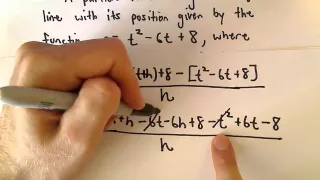 line with its position given by the
function = t² - 6t + 8, where
(t+h) + 8 - [t² - 6t + 8]
h
+ h - 6t - 6h + 8 - t² + 6t - 8
h